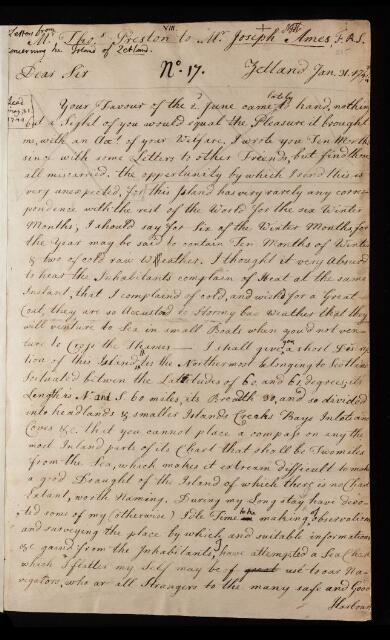 Letters from
concerning the Island of Zetland.
VIII
Mr. Thos. Preston to Mr. Joseph Ames, F.R.S.
Dear Sir No. 17. Zetland Jan 31. 174
Read
1744
Your Favour of the 2 June came lately to hand, nothing
but a Sight of you would equal the Pleasure it brought
me, with an Acct. of your Welfare, I wrote you Ten Months
since with some Letters to other Freinds, but find those
all miscarried. the oppertunity by which I send this is
very unexpected, for this Island has very rarely any corres-
pondence with the rest of the World for the sex Winter
Months, I should say for Six of the Winter Months, for
the Year may be said to contain Ten Months of Winter
& two of cold raw Weather. I thought it very Absurd
to hear the Inhabitants complain of Heat at the same
Instant, that I complaind of cold, and wish'd for a Great
Coat, they are so accustomd to Stormy bad Weather that they
will venture to Sea in small Boats when you'd not ven-
ture to Cross the Thames — I shall give you a short Descrip-
tion of this Island, tis the Northermost belonging to Scotland
Scetuated between the Lattitudes of 60, and 61 degrees, its
Length is N and S 60 miles, its Breadth 30, and so divided
into headlands & smaller Islands Creeks Bays Inlets and
Coves &c. that you cannot place a compass on any the
most Inland parts of its Chart that shall be Two miles
from the Sea, which makes it extream difficult to make
a good Draught of the Island of which there is no Chart
Extant, worth Naming. During my Long stay have devo-
ted some of my (otherwise) Idle Time to the making of observations
and surveying the place by which, and suitable informations
&c gained from the Inhabitants, I have attempted a Sea Chart
which I flatter my Self may be of great use to our Na-
vigators, who are all Strangers to the many safe and Good
Harbours